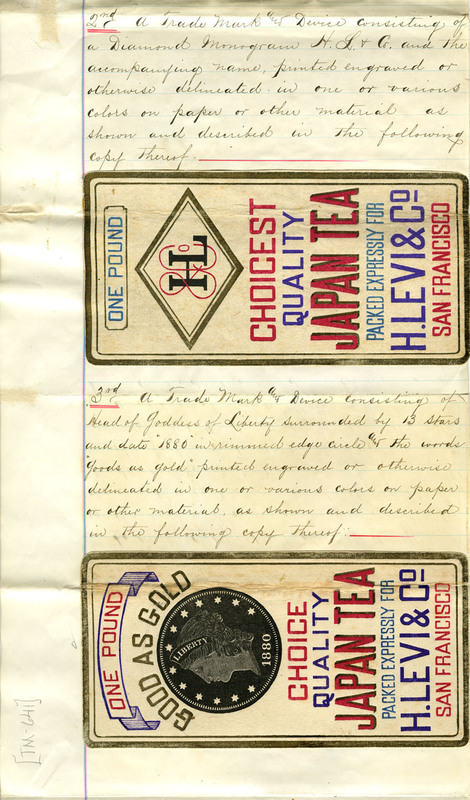 2nd A Trade Mark or Device consisting of
a Diamond Monogram H. L. & Co. and the
accompanying name, printed engraved or
otherwise delineated in one or various
colors on paper or other material as
shown and described in the following
copy thereof.
ONE POUND
HL&Co
CHOICEST
QUALITY
JAPAN TEA
PACKED EXPRESSLY FOR
H. LEVI & CO
SAN FRANCISCO
3rd A Trade Mark or Device consisting of
Head of Goddess of Liberty surrounded by 13 stars
and date "1880" in rimmed edge circle & the words
"Goods as gold" printed engraved or otherwise
delineated in one or various colors on paper
or other material, as shown and described
in the following copy thereof:
ONE POUND
GOOD AS GOLD
LIBERTY
1880
CHOICE
QUALITY
JAPAN TEA
PACKED EXPRESSLY FOR
H. LEVI & CO
SAN FRANCISCO
[TM-641]